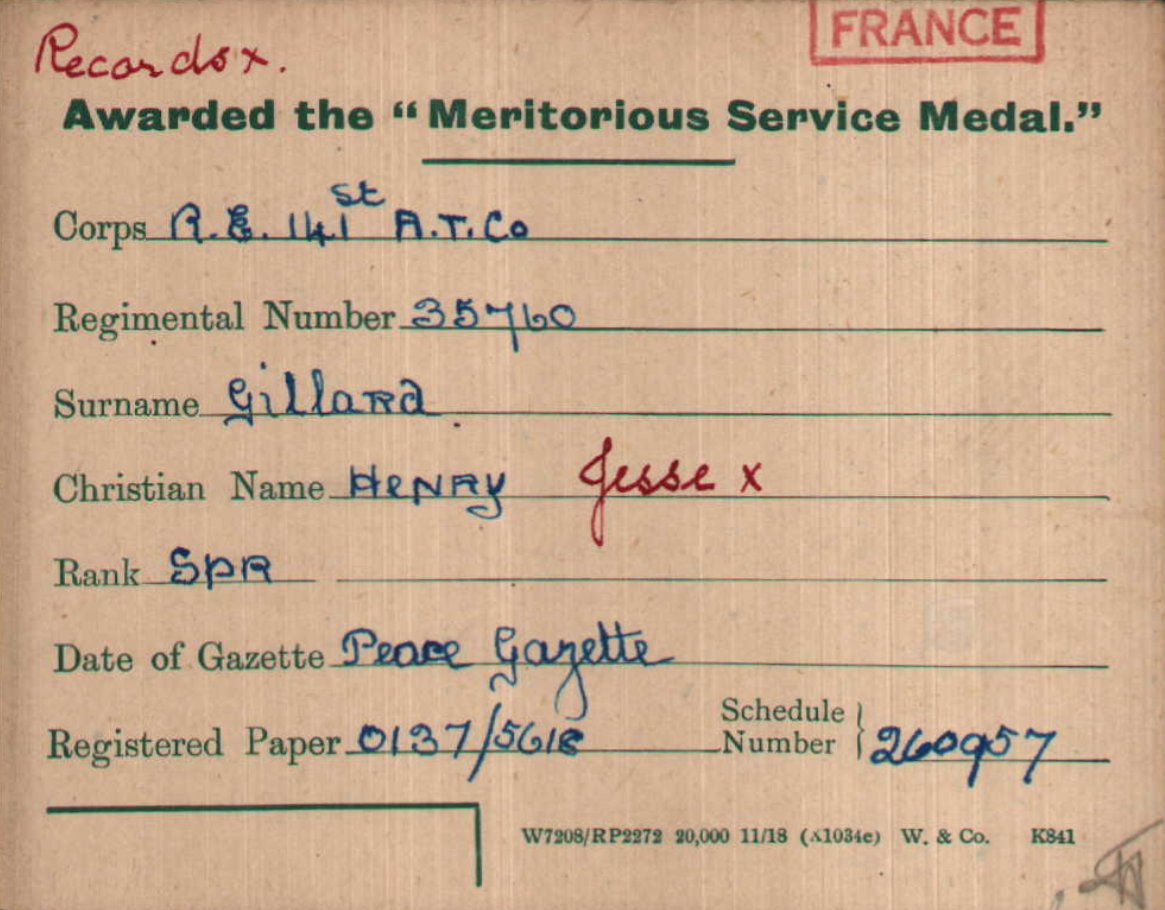 Records x.
FRANCE
Awarded the “Meritorious Service Medal.”
Corps R.E. 141st A.T.Co
Regimental Number 35760
Surname Gillard
Christian Name HENRY Jesse x
Rank SPR
Date of Gazette Peace Gazette
Registered Paper 0137/5618 Schedule Number } 260957
W7208/RP2272 20,000 11/18 (A1034e) W. & Co. K841